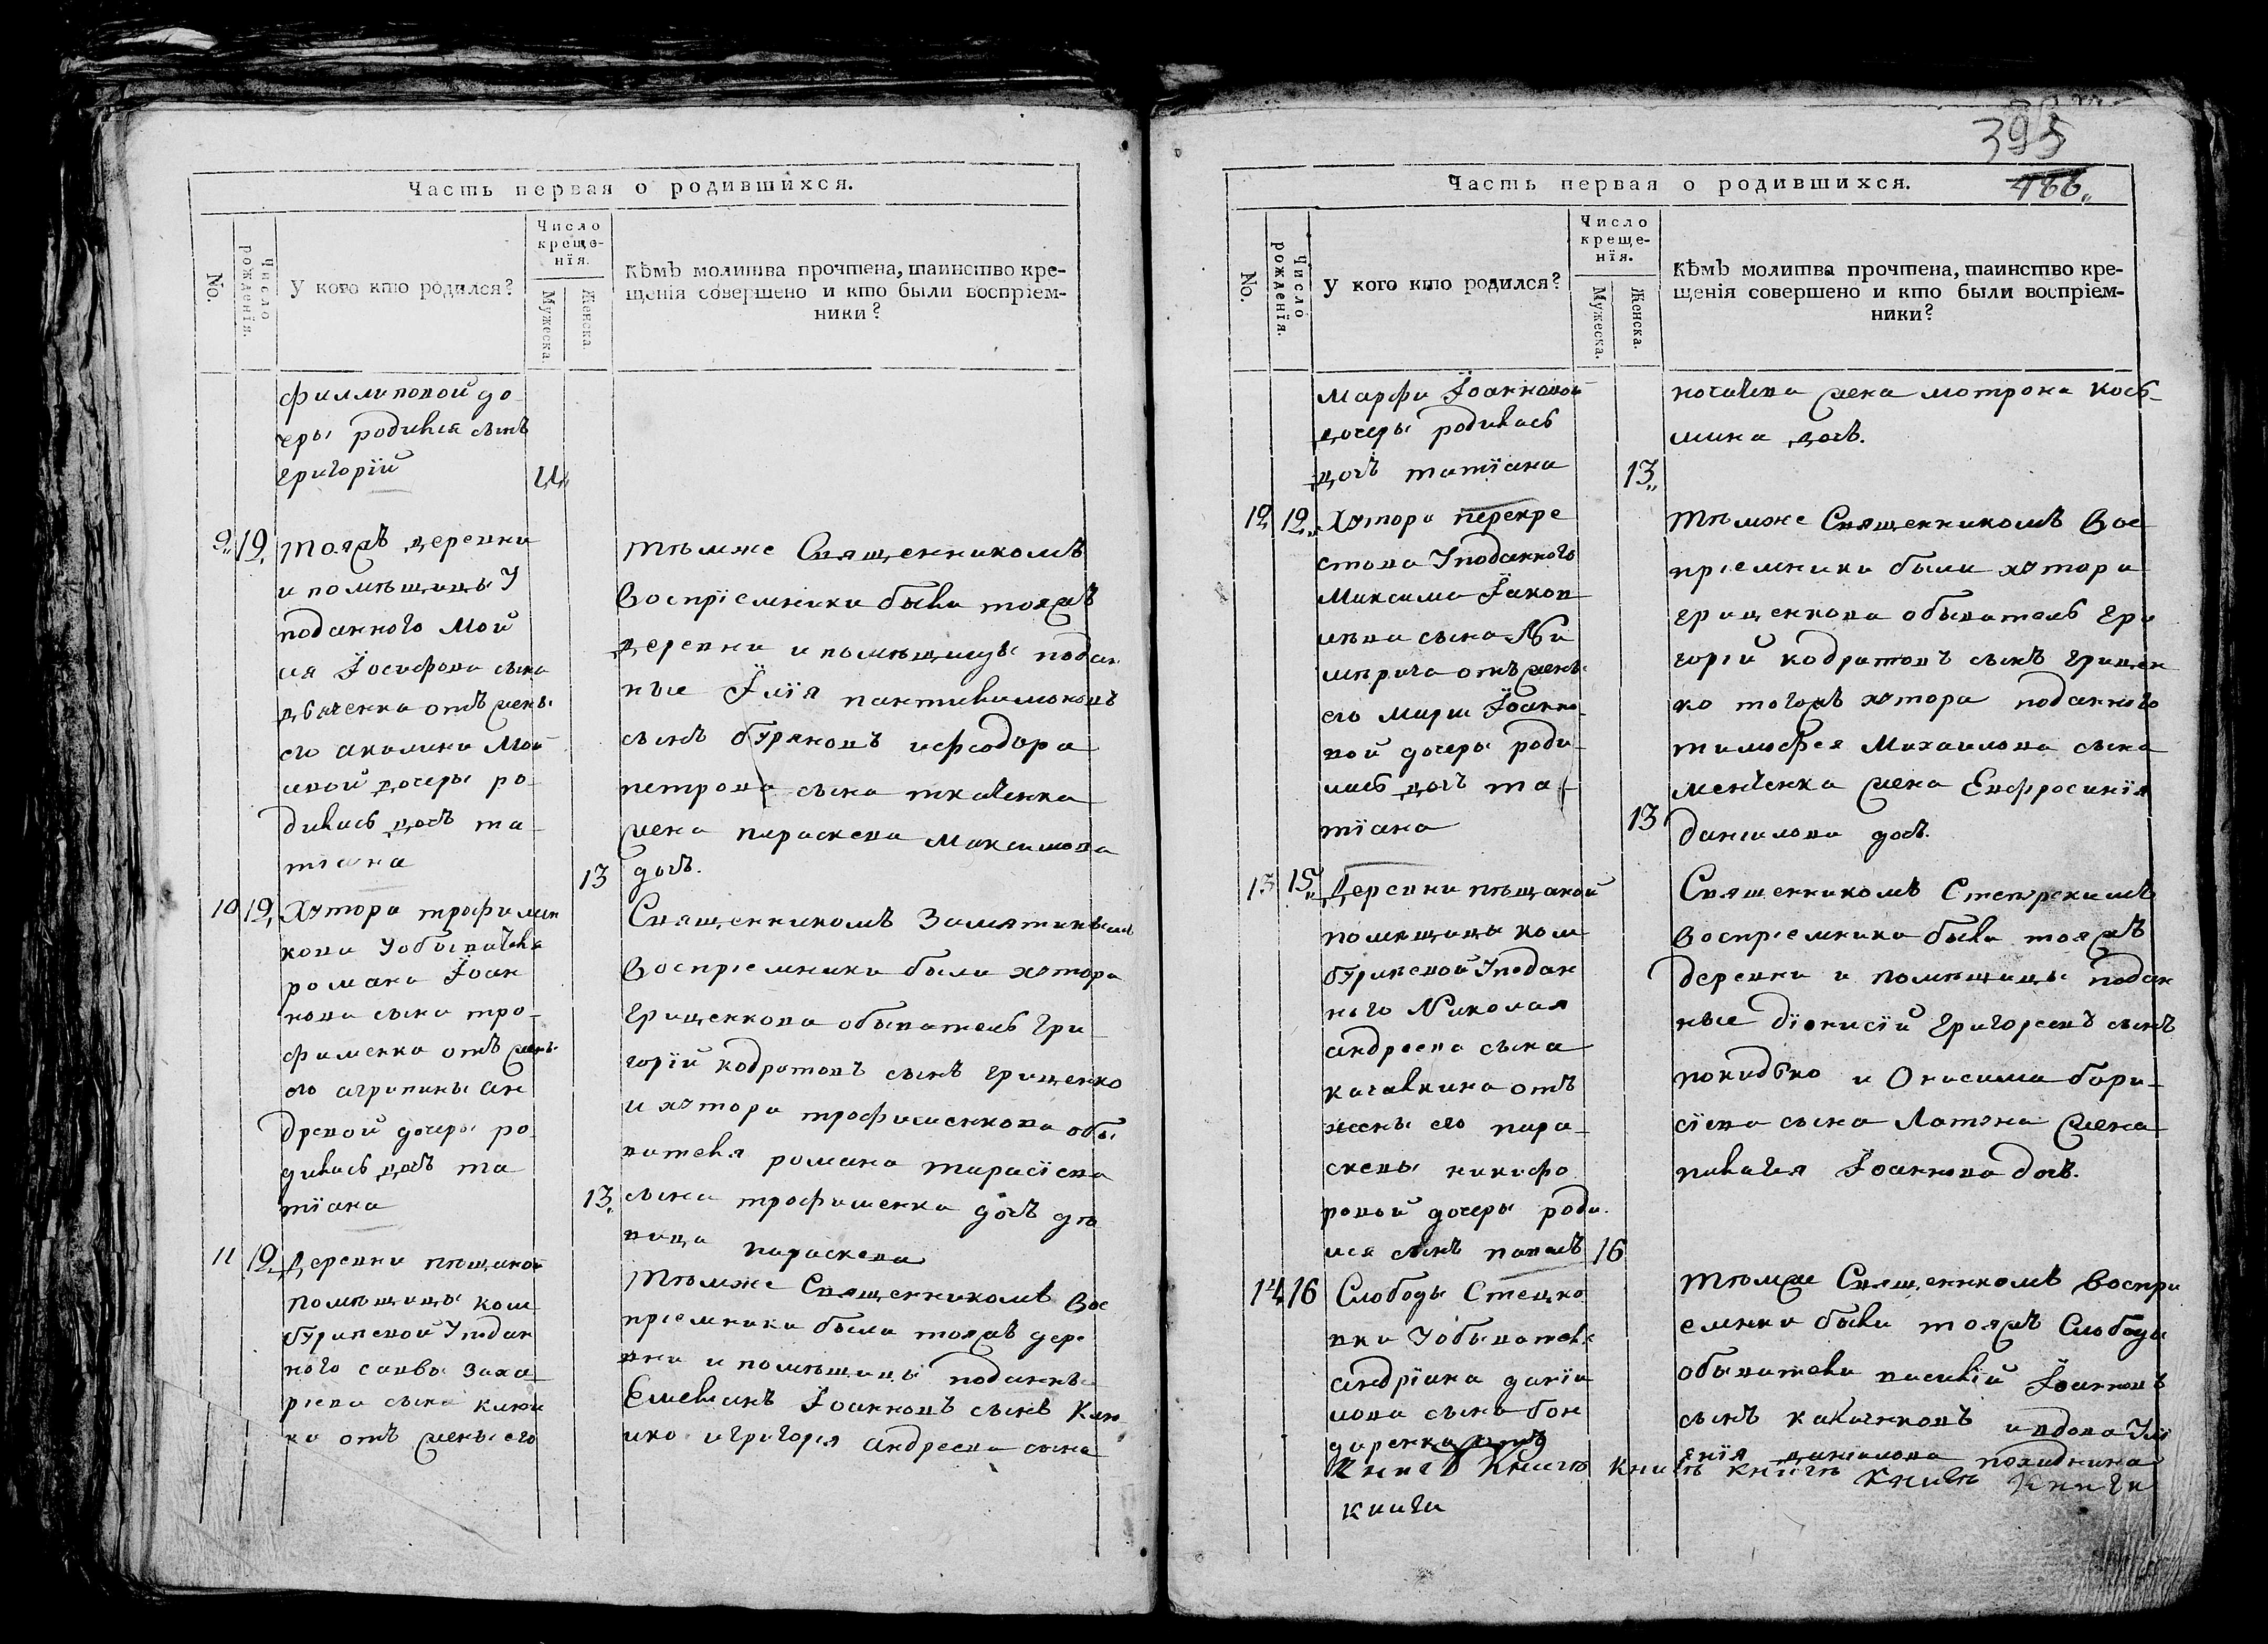 Часть первая о родившихся.
No.
Число рожденїя.
У кого кто родился?
Число
креще-
нїя.
Мужеска.
Женска.
Кѣмъ молитва прочтена, таинство кре-
щенїя совершено и кто были воспрїем-
ники?
филлиповой до
черы родился сынъ
григорїй
9 12 тояжъ деревни
и помѣщицы У
поданного Мой
сїя Їосифова сына
дяченка отъ жены
его акилины Мои
сѣевой дочеры ро-
дилась дочь та-
тїана
13
тѣмже Священникомъ
Воспрїемники были тояжъ
деревни и помѣщицы подан
ные Їлїя пантилимоновъ
сынъ буряковъ ифеодора
петрова сына ткаченка
жена параскева Максимова
дочь.
10 12 Хутора трофимен
кова Уобывателя
романа Їоан
нова сына тро-
фименка отъ жены
его агрипины ан
древой дочеры ро
дилась дочь та
тїана
13
Священникомъ Замятинымъ
Воспрїемники были хутора
грищенкова обыватель гри
горїй кодратовъ сынъ грищенко
и хутора трофименкова обы
вателя романа тарасїева
сына трофименка дочь дѣ
вица параскева
11 12 Деревни пѣщаной
помѣщицы ком
буриевой Уподан
ного саввы заха
рїева сына
отъ жены его
тѣмже Священникомъ Вос
прїемники были тояжъ дере
вни и помѣщицы поданные
Емелїанъ Їоанновъ сынъ
и григорїя андреева сына
395
Часть первая о родившихся.
No.
Число рожденїя.
У кого кто родился?
Число
креще-
нїя.
Мужеска.
Женска.
Кѣмъ молитва прочтена, таинство кре-
щенїя совершено и кто были воспрїем-
ники?
марфы Їоанновой
дочеры родилась
дочь татїана
13
жена мотрона Косъ-
мина дочь.
12 12 Хутора перекре
стова Уподанного
Максима Їаков
лева сына
отъ жены
его марїи Їоанно
вой дочеры роди
лась дочь та
тїана
13
тѣмже Священникомъ Вос
прїемники были хутора
грищенкова обыватель гри
горїй кодратовъ сынъ грищен
ко тогожъ хутора поданного
тимофея Михаилова сына
жена Евфросинїя
данилова дочь.
13 15 Деревни пѣщаной
помѣщицы ком
буриевой Уподан
ного Николая
андреева сына
качалкина отъ
жены его пара-
скевы никифо
ровой дочеры роди
лся сынъ павелъ 16
Священникомъ
Воспрїемники были тояжъ
деревни и помѣщицы подан
ные дїонисїй григорїевъ сынъ
и Онисима бори-
сїева сына жена
пелагея Їоаннова дочь.
14 16 Слободы Стецко
вки Уобывателя
андрїана данїи
лова сына бон
даренка отъ
тѣмже Священикомъ Воспри
емники были тояжъ Слободы
обыватели василїй Їоанновъ
сынъ ивдова Улї
данилова
книгъ книгъ книгъ книгъ книгъ книги
книги